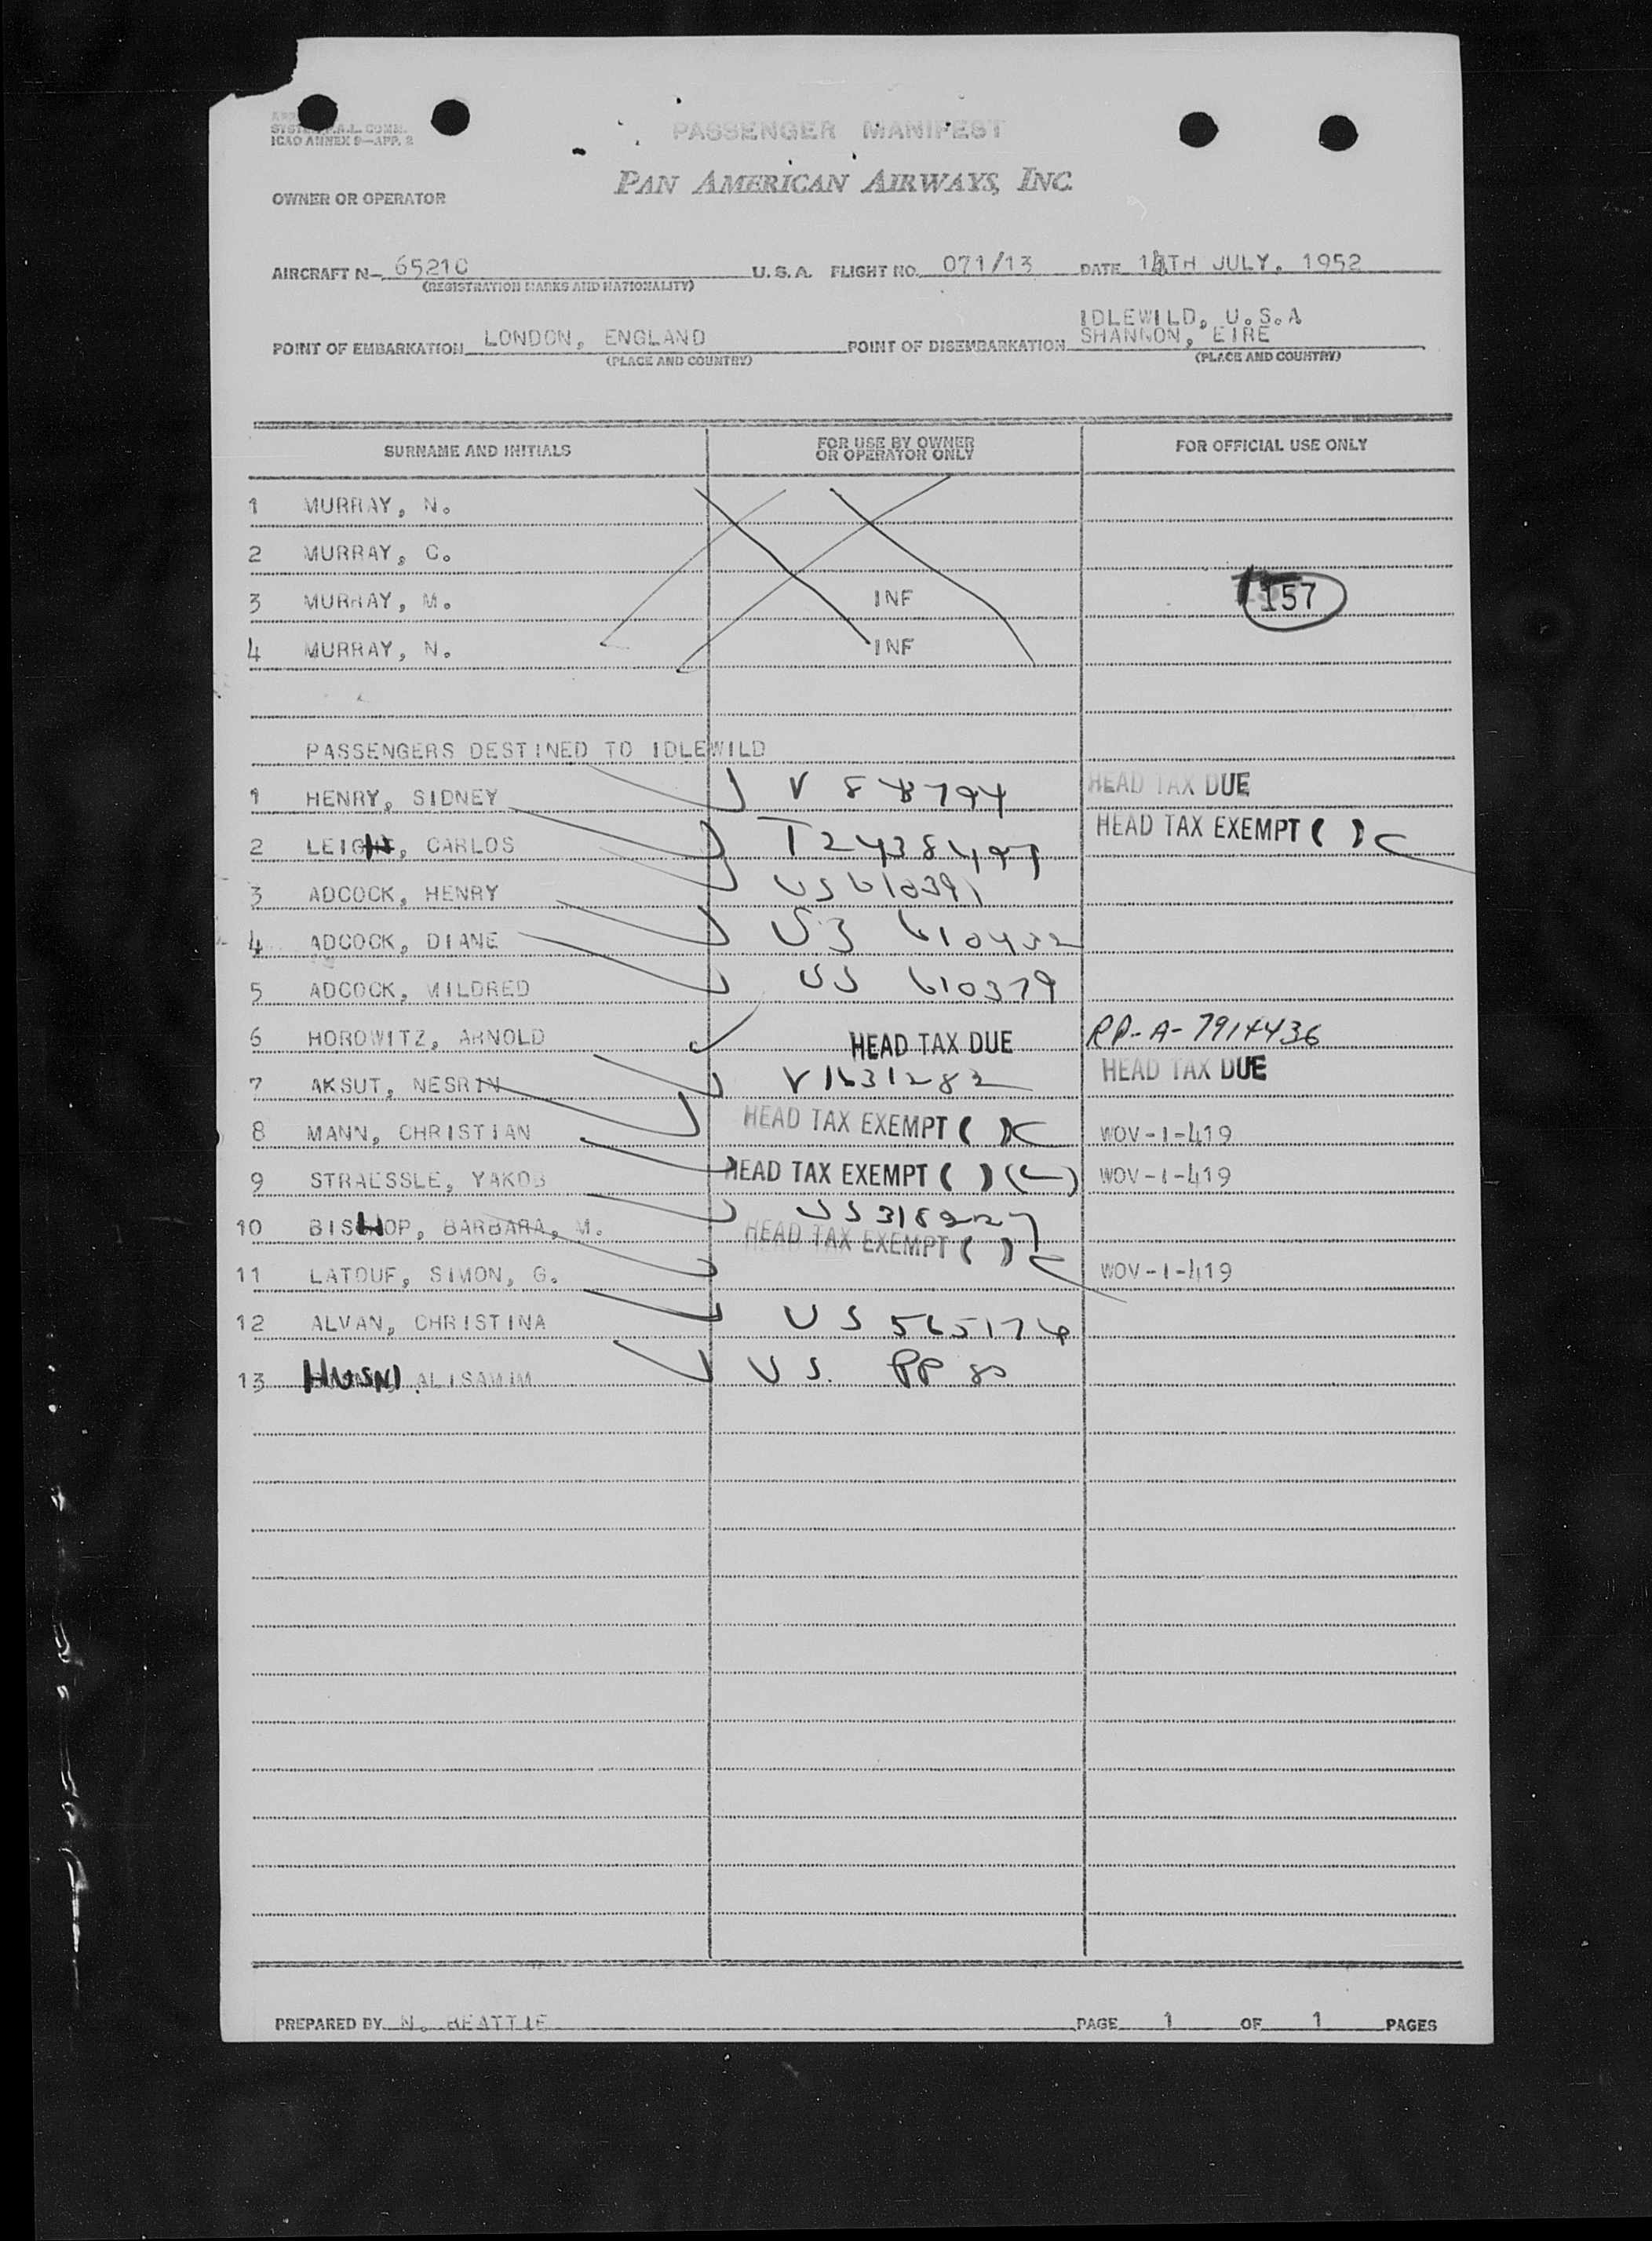 SYSTEM F.A.L. COMM.
ICAO ANNEX 9—APP. 2
PASSENGER MANIFEST
PAN AMERICAN AIRWAYS, INC.
OWNER OR OPERATOR
AIRCRAFT N- 65210 U.S.A. FLIGHT NO. 071/13 DATE TH JULY, 1952
(REGISTRATION MARKS AND NATIONALITY)
IDLEWILD, U.S.A
POINT OF EMBARKATION LONDON, ENGLAND POINT OF DISEMBARKATION SHANNON, EIRE
(PLACE AND COUNTRY) (PLACE AND COUNTRY)
SURNAME AND INITIALS FOR USE BY OWNER OR OPERATOR ONLY FOR OFFICIAL USE ONLY
1 MURRAY, N.
2 MURRAY, C.
3 MURRAY, M. INF 157
4 MURRAY, N. INF
PASSENGERS DESTINED TO IDLEWILD
1 HENRY, SIDNEY V HEAD TAX DUE
2 LEIGH, CARLOS HEAD TAX EXEMPT ( )
3 ADCOCK, HENRY US 610391
4 ADCOCK, DIANE US 610432
5 ADCOCK, MILDRED US 610379
6 HOROWITZ, ARNOLD HEAD TAX DUE RP-A-7914436
7 AKSUT, NESRIN V1631282 HEAD TAX DUE
8 MANN, CHRISTIAN HEAD TAX EXEMPT ( ) WOV-1-419
9 STRAESSLE, YAKOB HEAD TAX EXEMPT ( ) WOV-1-419
10 BISHOP, BARBARA, M. US
11 LATOUF, SIMON, G. HEAD TAX EXEMPT ( ) WOV-1-419
12 ALVAN, CHRISTINA US
13 HUSNI ALISAWIM US. PP 80
PREPARED BY N. BEATTIE PAGE 1 OF 1 PAGES